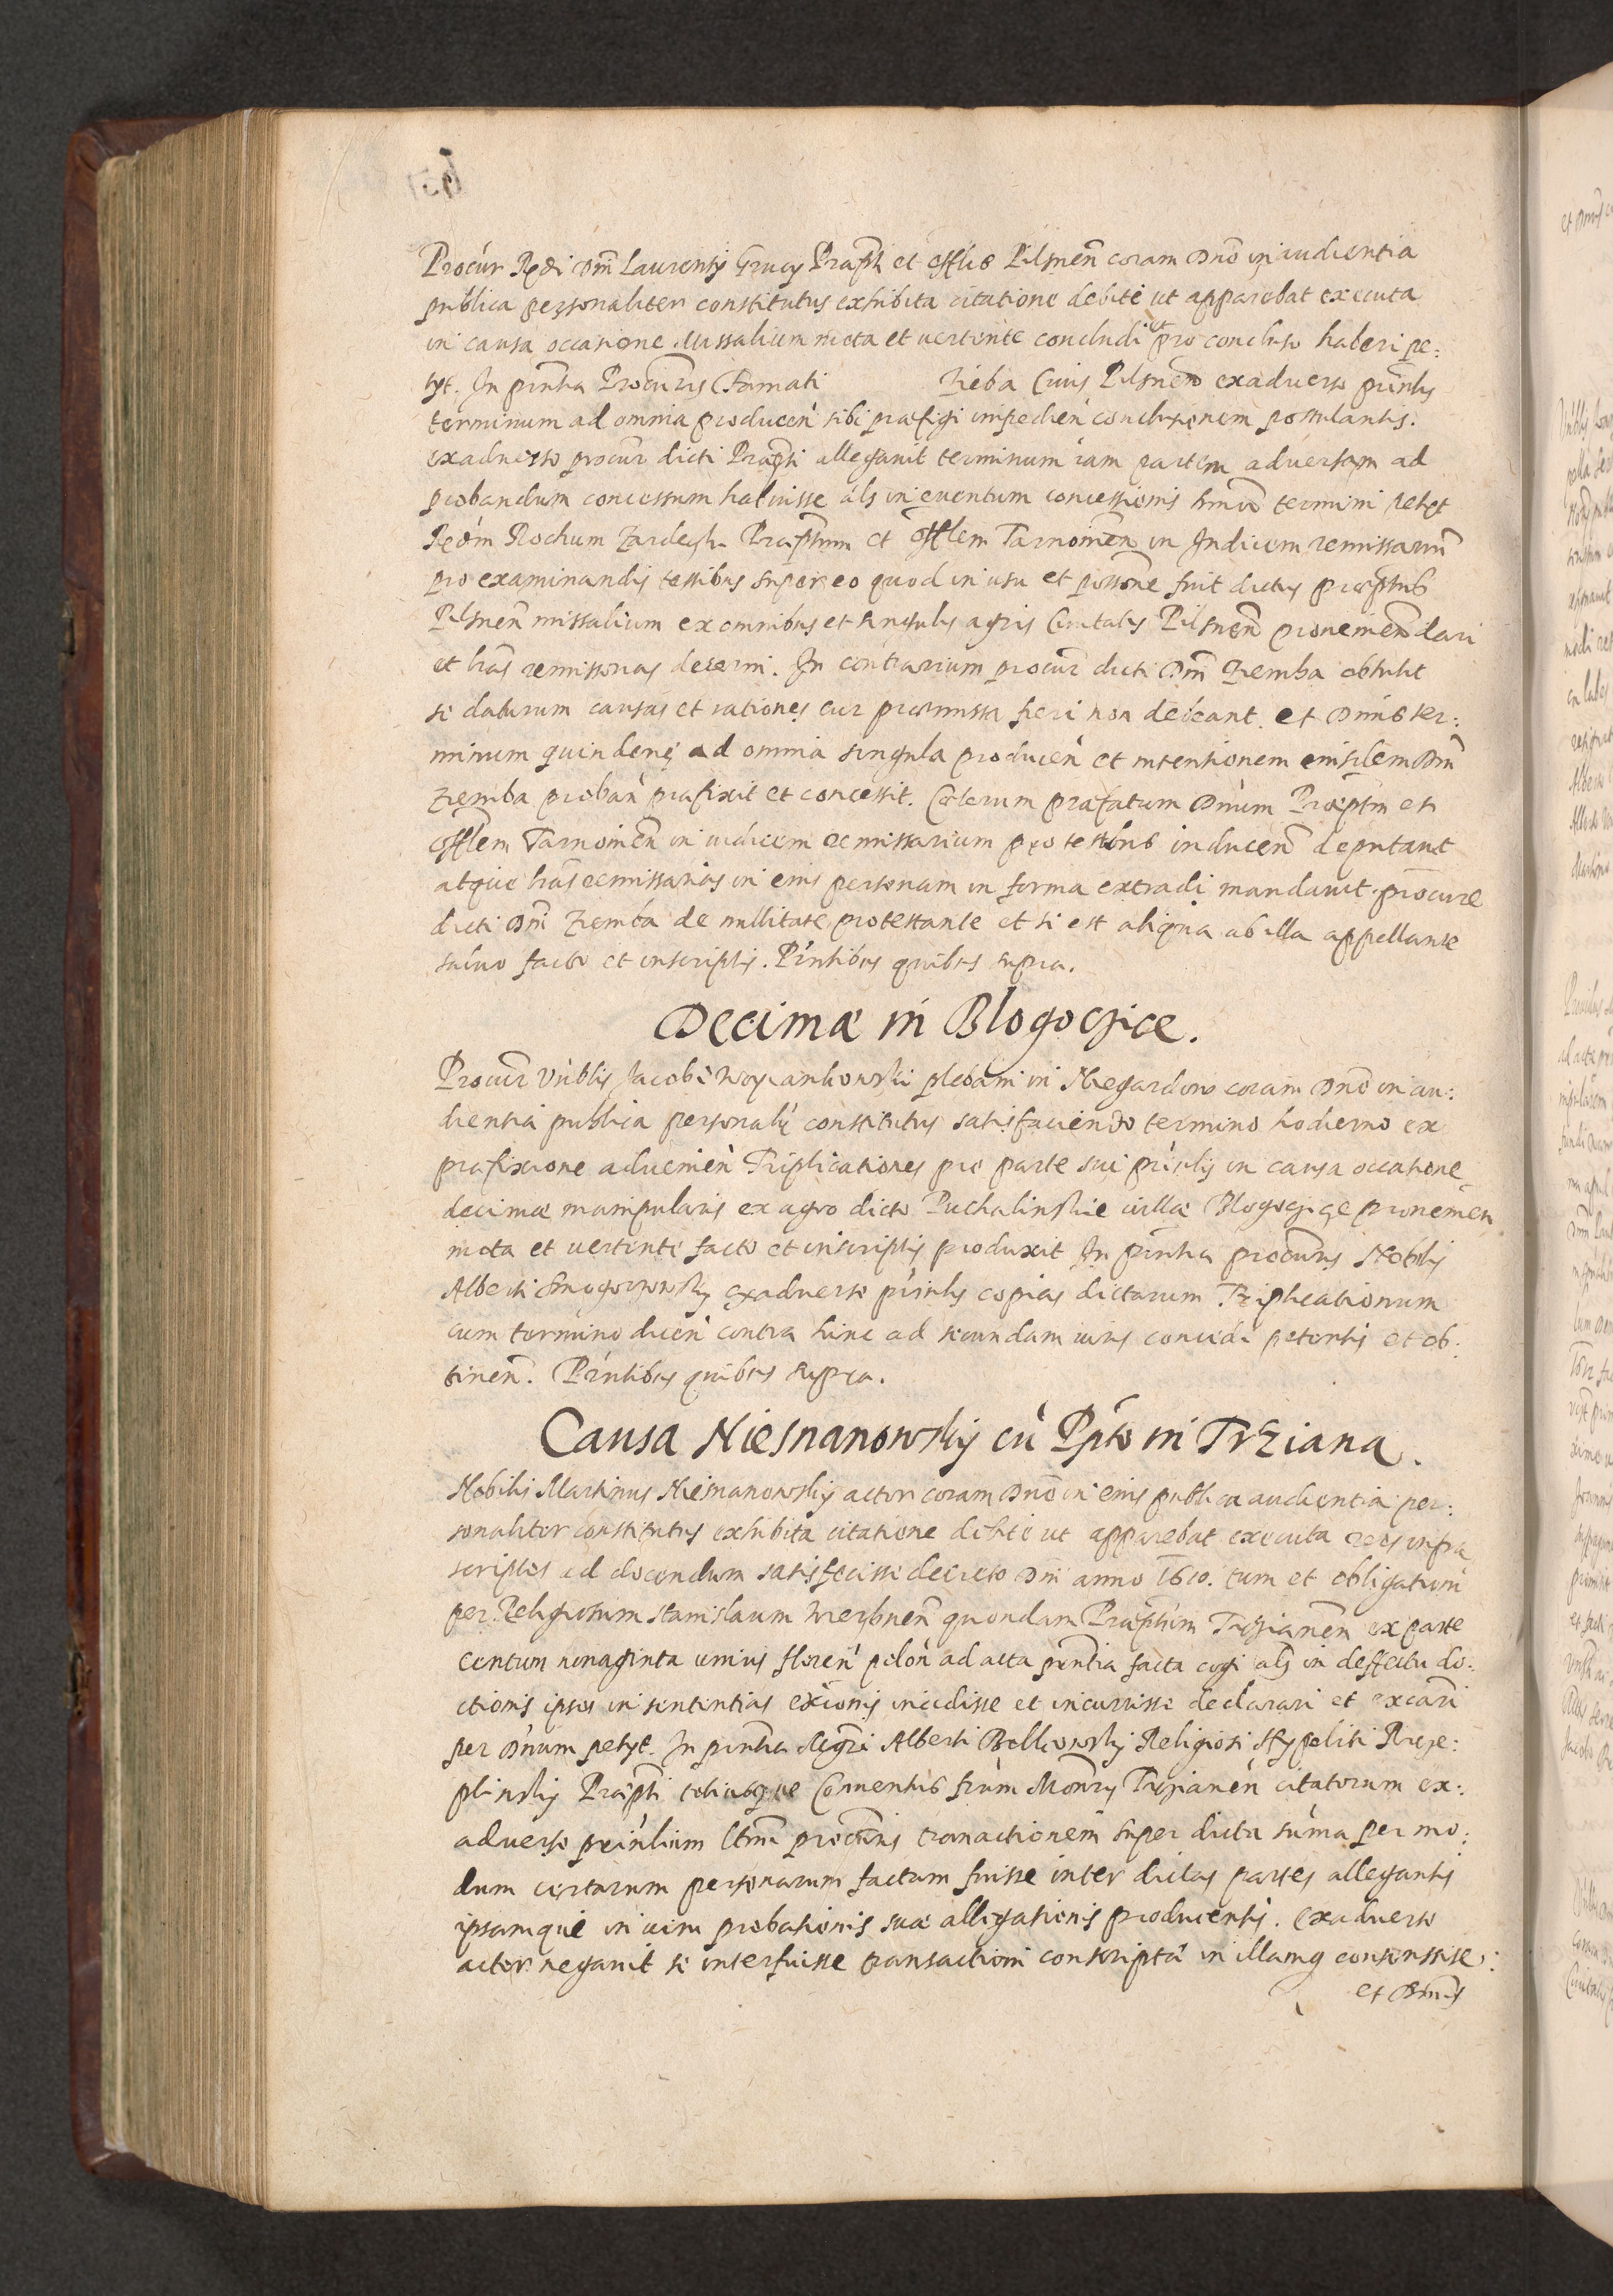 Procur Rndi Dni Laurentij Grucy Praepti et Offlis Pilsnen coram Dno in audientia
publica personaliter constitutus exhibita citatione debite ut apparebat executa
in causa occasione Missalium mota et vertente concludi et pro concluso haberi pe:
tyt. In pntia Procuris Famati Zięba Civis Pilsnen exadverso prinlis
terminum ad omnia producen sibi praefigi impedien conclusionem postulantis.
exadverso procur dicti Praepti allegavit terminum iam partem adversam ad
probandum concessum habuisse als in eventum concessionis hmoi termini petyt
Rndm Rochum Praeptum et Offlem Tarnovien in Iudicem remissarium
pro examinandis testibus super eo quod in usu et possone fuit dictus praeptus
Pilsnen missalium ex omnibus et singulis agris Civitatis Pilsnen provenien dari
et lras remissorias decerni. In contrarium procur dicti Dni Ziemba obtulit
se daturum causas et rationes cur praemissa fieri non debeant et Dnus ter:
minum quindenę ad omnia singula producen et intentionem eiusdem Dni
Ziemba proban praefixit et concessit. Caeterum praefatum Dnum Praeptm et
Offlem Tarnovien in iudicem remissarium pro testibus inducen deputavit
atque lras remissorias in eius personam in forma extradi mandavit. procure
dicti Dni Ziemba de nullitate protestante et si est aliqua ab illa appellante
salvo facto et inscriptis. Pntibus quibus supra.
Decimae in Blogocice.
Procur Vnblis Jacobi Woyciankowski plebani in Niegardow coram Dno in au:
dientia publica personalr constitutus satisfaciendo termino hodierno ex
praefixione advenien Triplicationes pro parte sui prinlis in causa occasione
decimae manipularis ex agro dicto Puchalinskie villae Blogocice provenien
mota et vertente facto et inscriptis produxit In pntia procuris Nobilis
Alberti Smogorzowsky exadverso prinlis copias dictarum Triplicationum
cum termino dicen contra hinc ad secundam iuris concedi petentis et ob:
tinen. Pntibus quibus supra.
Causa Niesnanowskij cu Ppto in Trziana.
Nobilis Martinus Niesnanowskij actor coram Dno in eius publica audientia per:
sonaliter constitutus exhibita citatione debite ut apparebat executa reos infra
scriptos ad docendum satisfecisse decreto Dni anno 1610. tum et obligationi
per Religiosum Stanislaum quondam Praeptum Trzianen ex parte
centum nonaginta unius floren polon ad acta pntia facta cogi als in deffectu do:
ctionis ipsos in sententias excionis incidisse et incurrisse declarari et excari
per Dnum petyt. In pntia Mgri Alberti Religiosi Hypoliti Rze:
plinskij Praepti totiusque Conventus frum Monrij Trzianen citatorum ex:
adverso prinlium ltmi procuris tranactionem super dicta suma per mo:
dum certarum personarum factam fuisse inter dictas partes allegantis
ipsamque in vim probationis suae alligationis producentis. exadverso
actor negavit se interfuisse transactioni conscriptae in illamq consensisse:
et Dnus